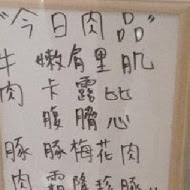 "今日肉品"
牛 嫩肩里肌
肉 卡露比
腹臍心
豚 豚梅花肉
肉 霜降珍豚